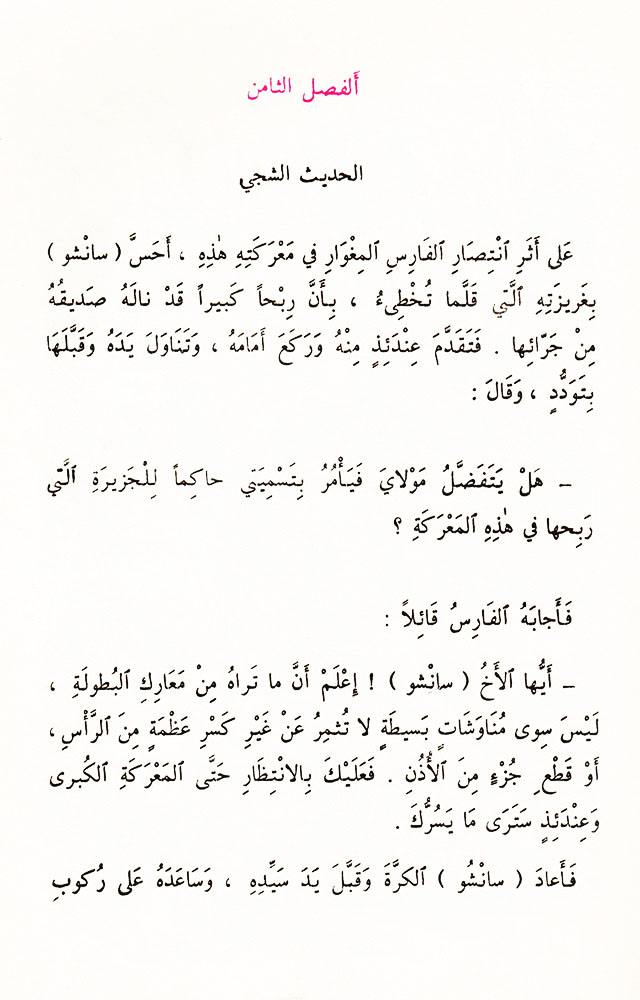 أَلفصل الثامن
الحديث الشجي
عَلى أَثَرِ ٱنْتِصَارِ ٱلفَارِسِ ٱلمِغْوَارِ في مَعْرَكَتِهِ هٰذِهِ ، أَحَسَّ ( سانْشو )
بِغَريزَتِهِ ٱلَّتي قَلَّما تُخْطِىءُ ، بِأَنَّ رِبْحاً كَبيراً قَدْ نالَهُ صَديقُهُ
مِنْ جَرَّائِها . فَتَقَدَّمَ عِنْدَئِذٍ مِنْهُ وَرَكَعَ أَمَامَهُ ، وَتَنَاوَلَ يَدَهُ وَقَبَّلَهَا
بِتَوَدُّدٍ ، وَقَالَ :
– هَلْ يَتَفَضَّلُ مَوْلايَ فَيَأْمُرُ بِتَسْمِيَتي حاكِماً لِلْجَزيرَةِ ٱلَّتي
رَبِحها في هٰذِهِ ٱلمَعْرَكَةِ ؟
فَأَجابَهُ ٱلفَارِسُ قَائِلاً :
– أَيُّها ٱلأَخُ ( سانْشو ) ! إِعْلَمْ أَنَّ ما تَراهُ مِنْ مَعَارِكِ ٱلبُطولَةِ ،
لَيْسَ سِوى مُنَاوَشَاتٍ بَسيطَةٍ لا تُثمِرُ عَنْ غَيْرِ كَسْرِ عَظْمَةٍ مِنَ ٱلرَّأْسِ ،
أَوْ قَطْعِ جُزْءٍ مِنَ ٱلأُذُنِ . فَعَلَيْكَ بِالانْتِظَارِ حَتَّى ٱلمَعْرَكَةِ ٱلكُبرى
وَعِنْدَئِذٍ سَتَرَى مَا يَسُرُّكَ .
فَأَعادَ ( سانْشُو ) ٱلكرَّةَ وَقَبَّلَ يَدَ سَيِّدِهِ ، وَسَاعَدَهُ عَلى رُكوبِ